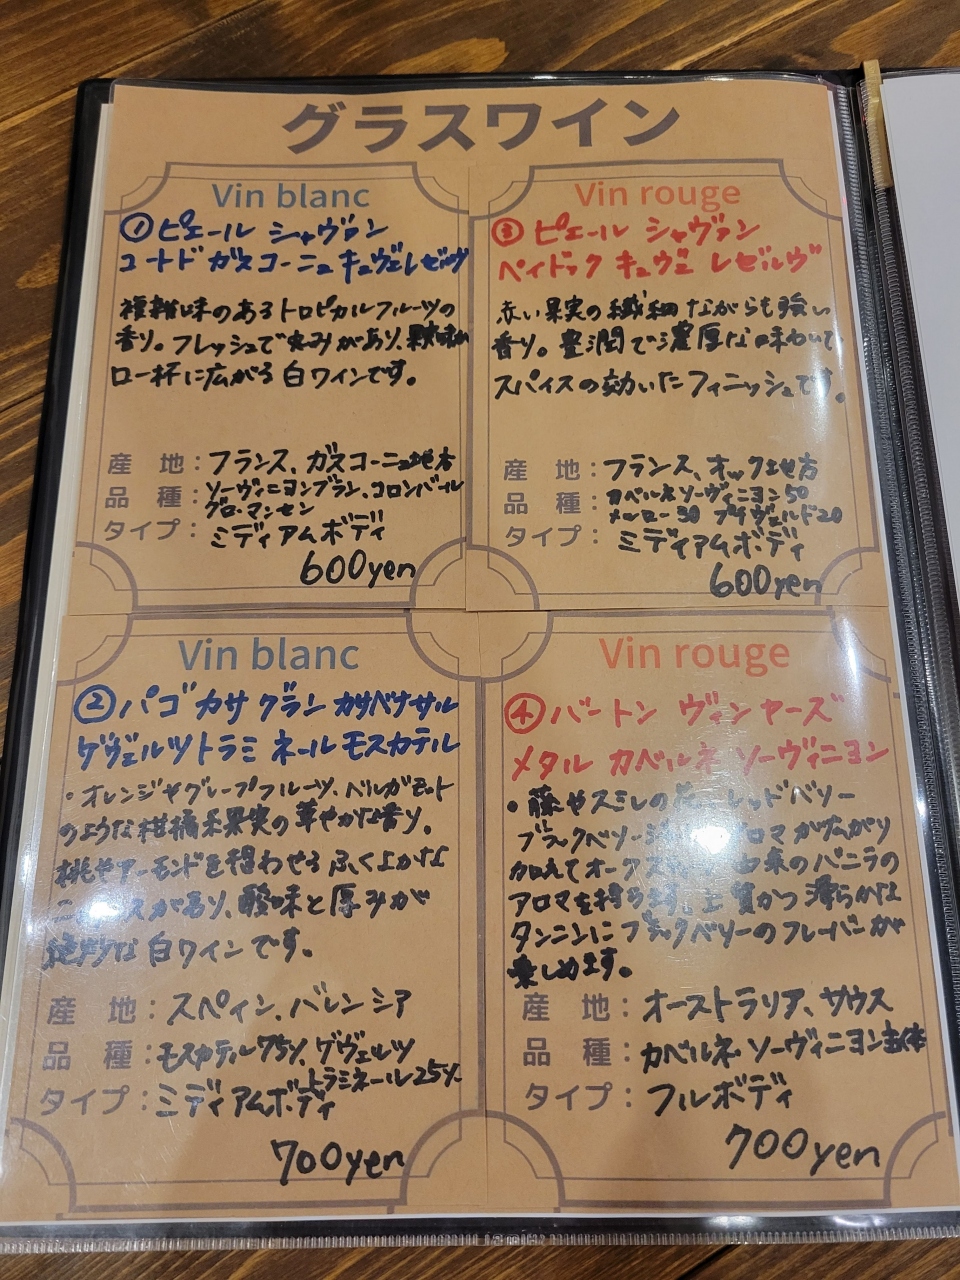 グラスワイン
Vin blanc
①ピエール シャヴァン
コートド ガスコーニュ キュヴェレゼルヴ
複雑味のあるトロピカルフルーツの
香り。フレッシュで丸みがあり、果実味が
口一杯に広がる白ワインです。
産 地：フランス、ガスコーニュ地方
品 種：ソーヴィニヨンブラン、コロンバール
グロ・マンセン
タイプ：ミディアムボディ
600yen
Vin rouge
③ピエール シャヴァン
ペイドック キュヴェ レゼルヴ
赤い果実の繊細ながらも強い
香り。豊潤で濃厚な味わいで
スパイスの効いたフィニッシュです。
産 地：フランス、オック地方
品 種：カベルネ ソーヴィニヨン50
メルロー30 プティヴェルド20
タイプ：ミディアムボディ
600yen
Vin blanc
②パゴ カサ グラン カサベナサル
ゲヴェルツトラミネール モスカテル
・オレンジやグレープフルーツ、ベルガモット
のような柑橘系果実の華やかな香り。
桃やアーモンドを思わせるふくよかな
スがあり、酸味と厚みが
な白ワインです。
産 地：スペイン、バレンシア
品 種：モスカテル75%、ゲヴェルツ
トラミネール25%
タイプ：ミディアムボディ
700yen
Vin rouge
④バートン ヴィンヤーズ
メタル カベルネ ソーヴィニヨン
・藤やスミレの花、レッドベリー
ブラックベリー アロマが広がり
加えてオーク 由来のバニラの
アロマを持ちます。上質かつ滑らかな
タンニンにブラックベリーのフレーバーが
楽しめます。
産 地：オーストラリア、サウス
品 種：カベルネ ソーヴィニヨン主体
タイプ：フルボディ
700yen